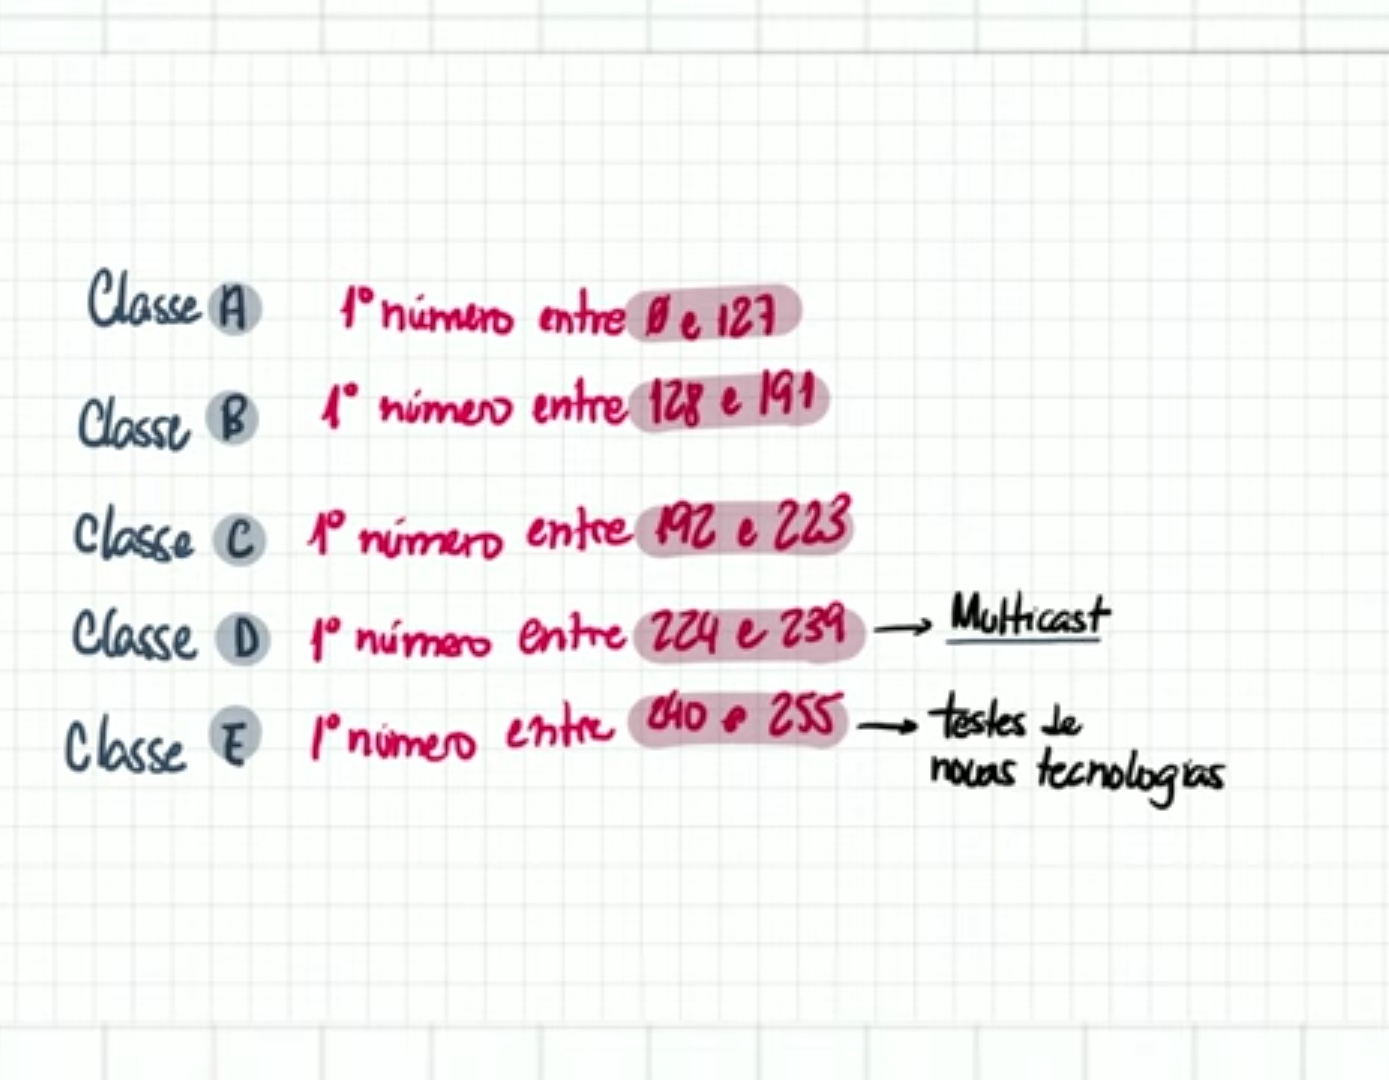 Classe A 1º número entre 0 e 127
Classe B 1º número entre 128 e 191
Classe C 1º número entre 192 e 223
Classe D 1º número entre 224 e 239 → Multicast
Classe E 1º número entre 240 e 255 → testes de
novas tecnologias